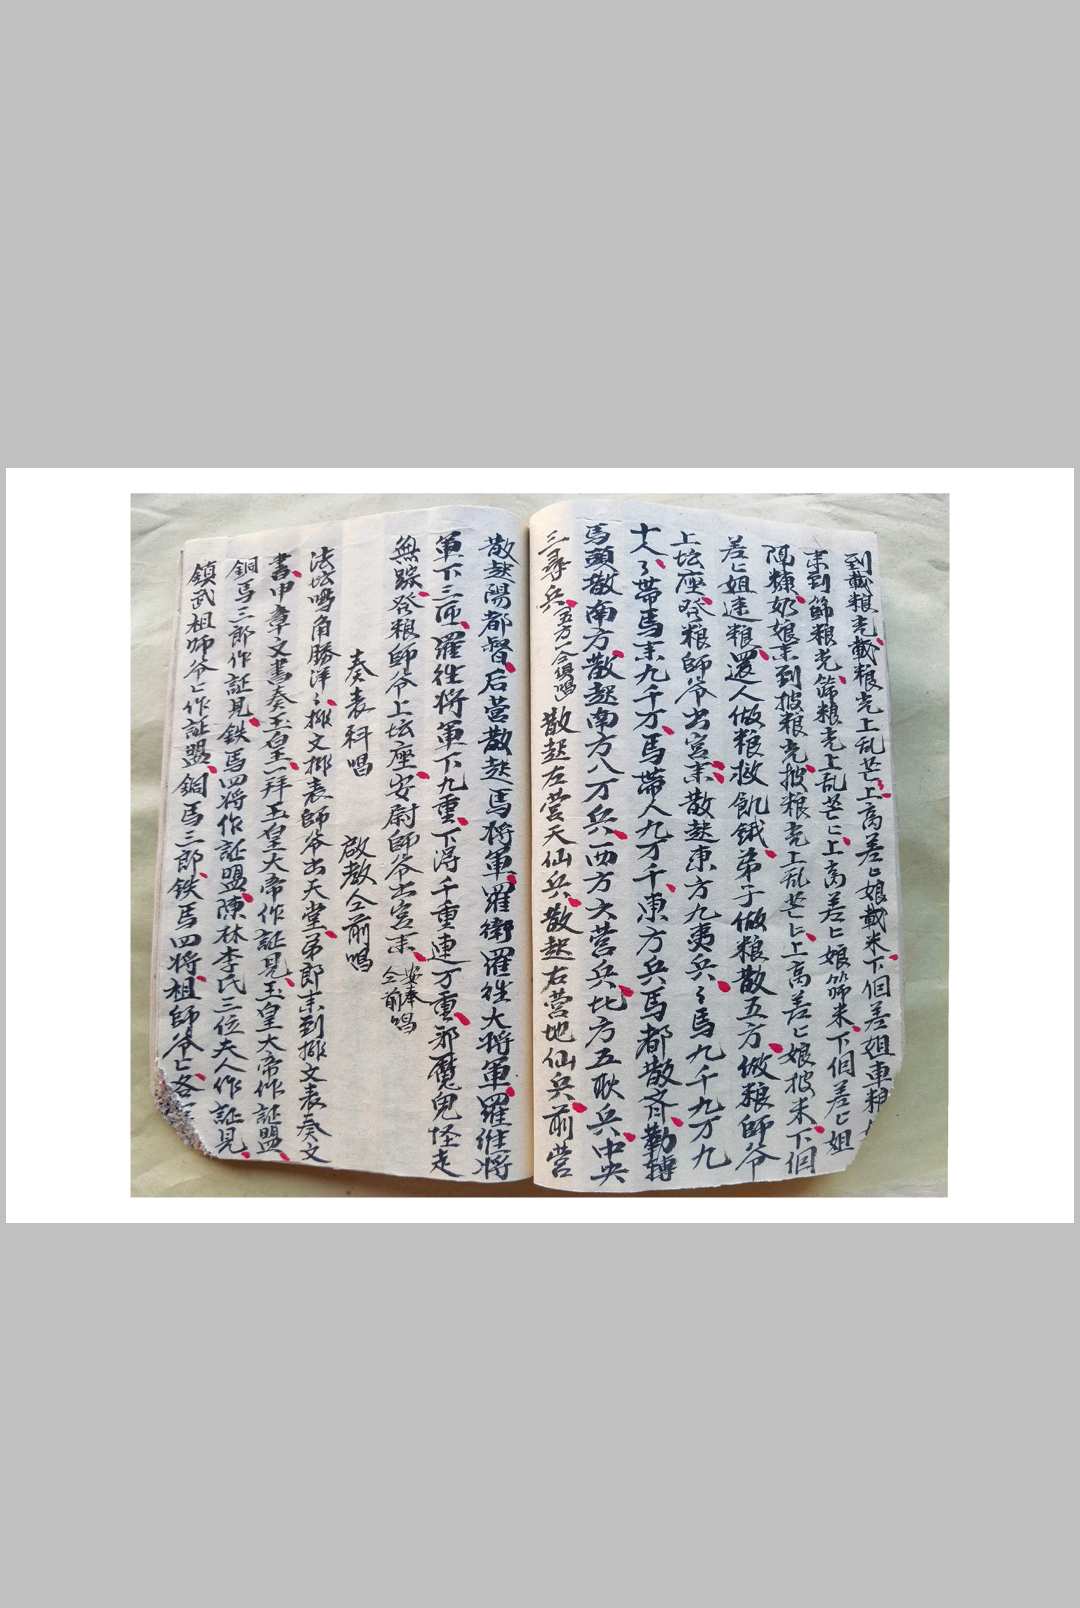 到載粮壳載粮壳上乱芒上高差〻娘載米下個差姐車粮
末到篩粮壳篩粮壳上乱芒〻上高差〻娘篩米下個差〻姐
隔糠奶娘末到披粮壳披粮壳上乱芒〻上高差〻娘披米下個
差〻姐逢粮還人做粮救飢餓弟子做粮散五方做粮師爷
上坛座發粮師爷出宮末散起東方九夷兵〻馬九千九万九
十人〻帶馬末九千万馬帶人九万千東方兵馬都散齐勒轉
馬頭散南方散起南方八万兵西方大营兵北方五耿兵中央
三尋兵五方一仝俱唱散起左营天仙兵散起右营地仙兵前营
散起陽都督后营散起馬將軍羅衛羅徃大將軍羅徃將
軍下三匝羅徃將軍下九重下得千重連万重邪魔鬼怪走
無踪發粮師爷上坛座安尉師爷出宮末安奉唱仝前
奏表科唱 啟教仝前唱
法坛鳴角勝洋〻排文排表師爷出天堂弟郎末到排文表奏文
書申章文書奏玉皇一拜玉皇大帝作証見玉皇大帝作証盟
銅馬三郎作証見鉄馬四將作証盟陳林李氏三位夫人作証見
鎮武祖师爷〻作証盟銅馬三郎鉄馬四將祖師爷〻各